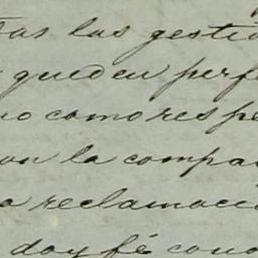 las gestio
queden perfe
no como respe
con la compa
a reclamaci
doy fé cono